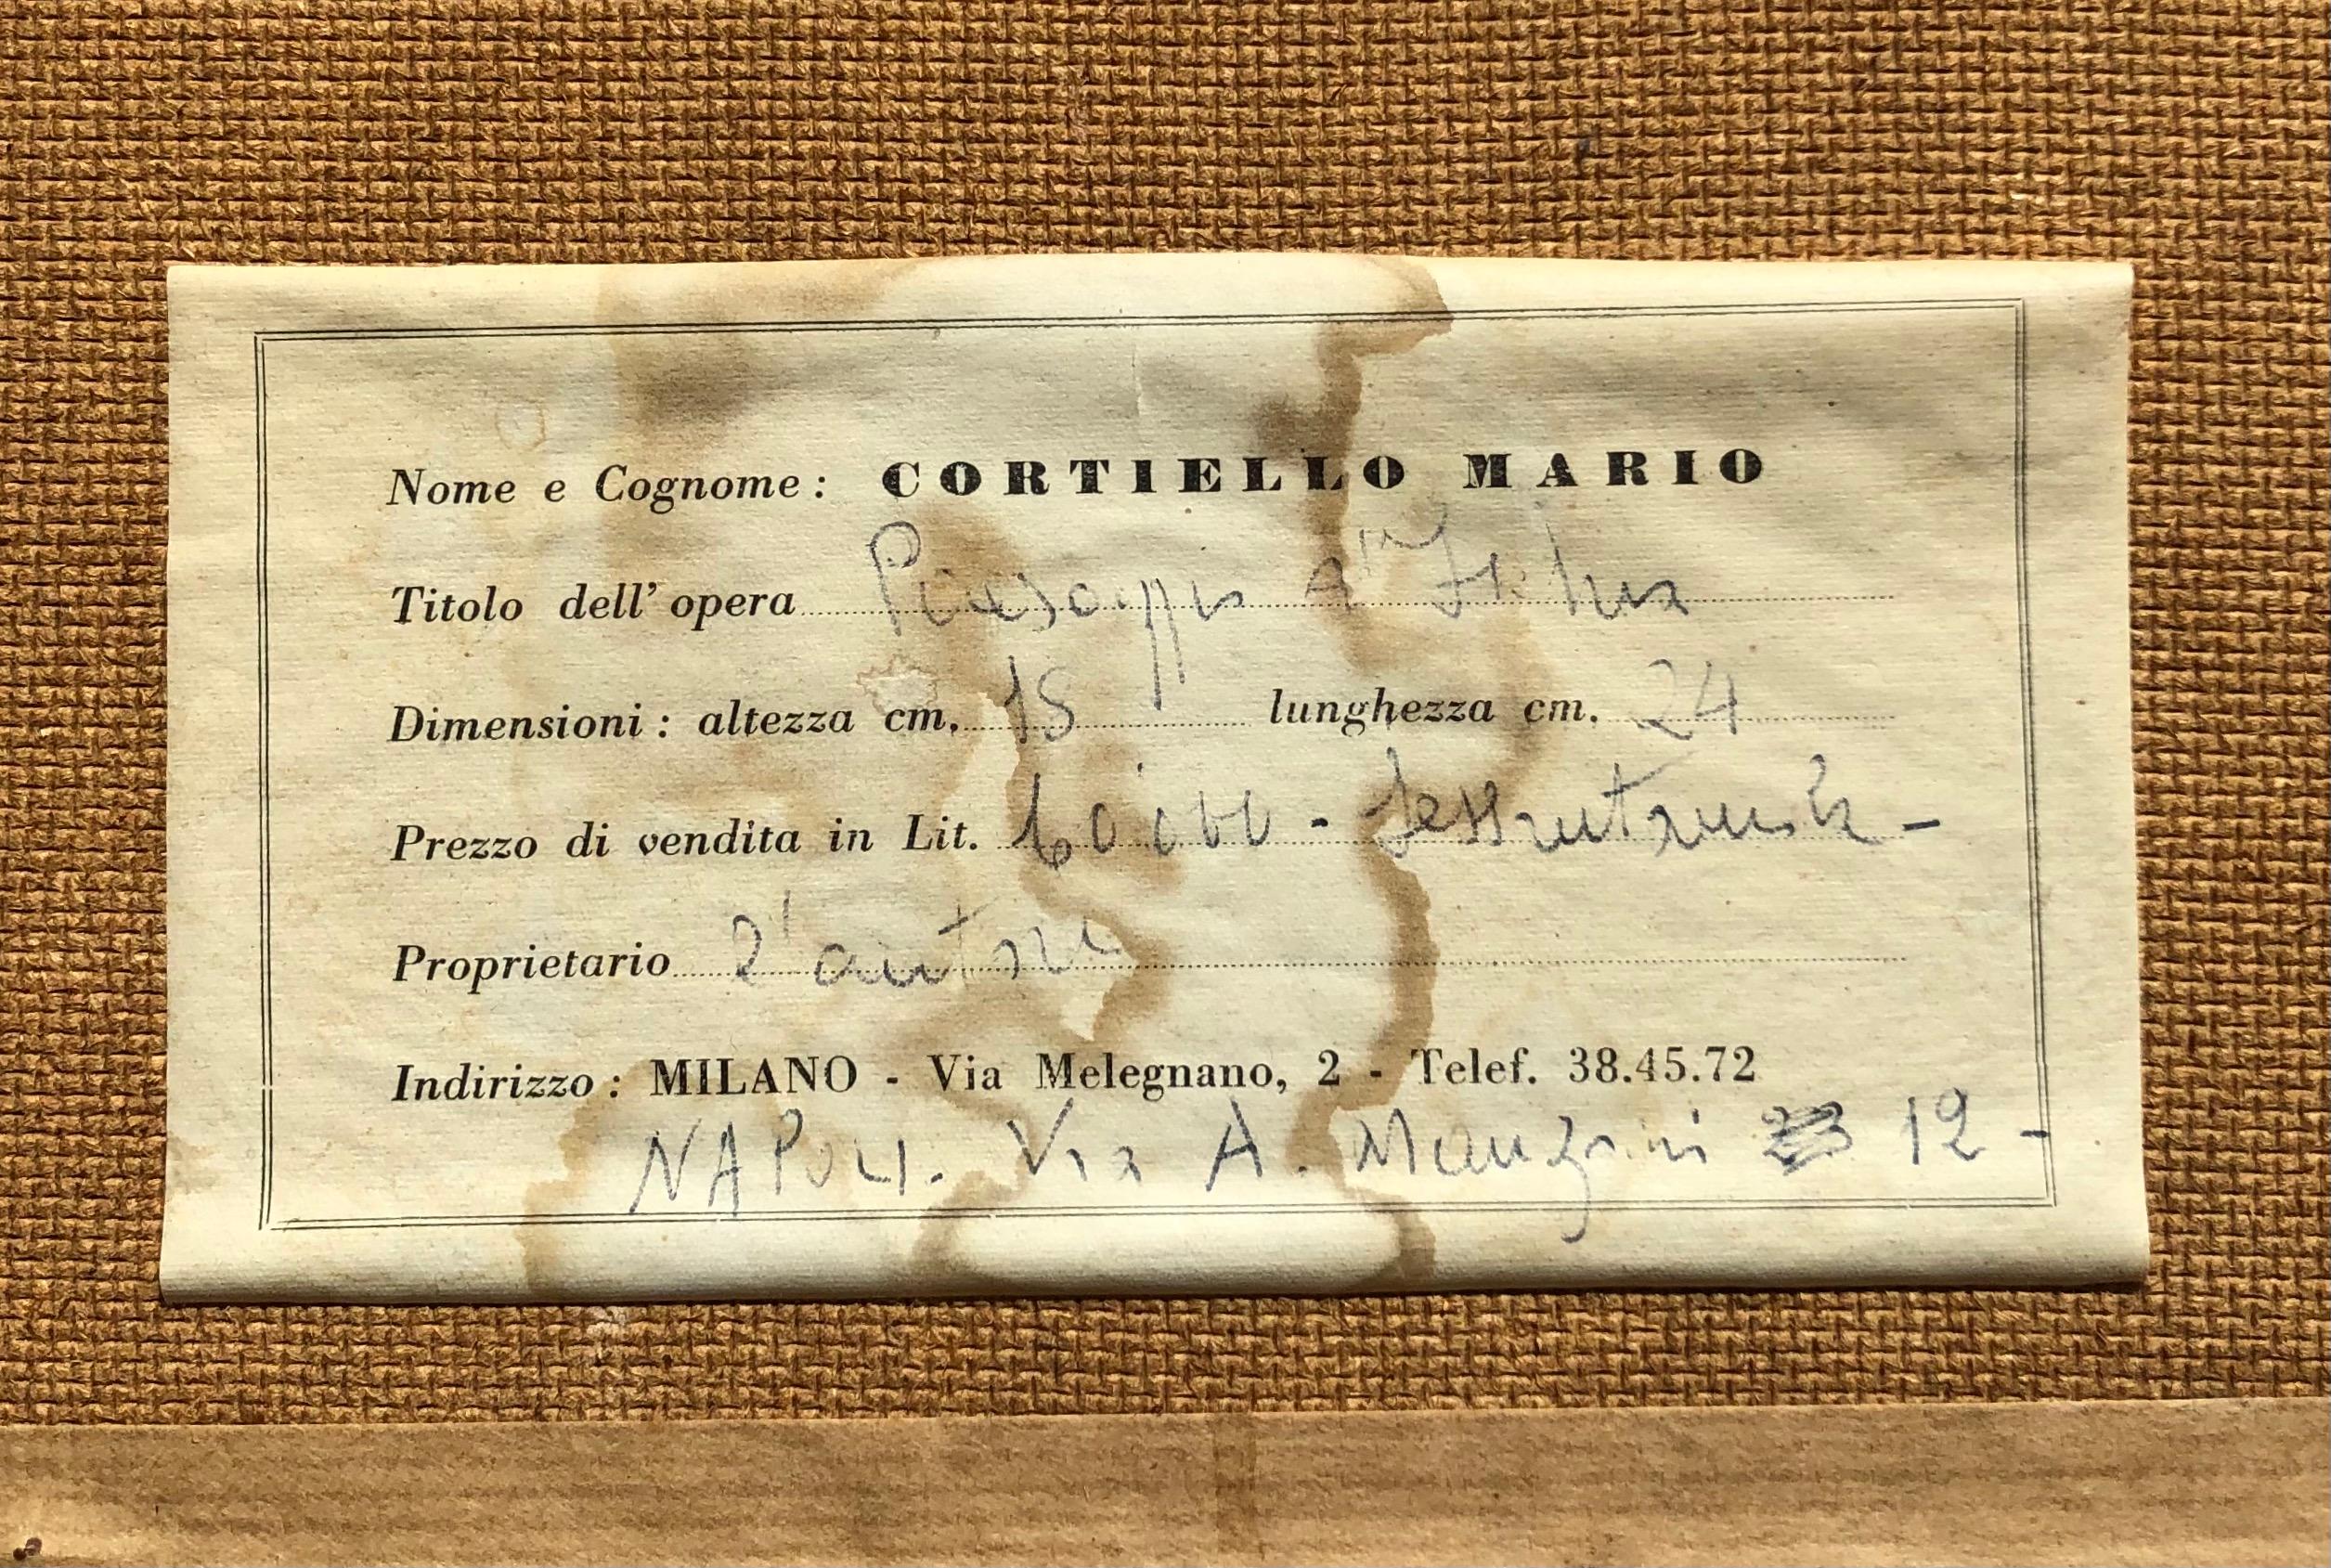 Nome e Cognome: CORTIELLO MARIO
Titolo dell'opera Paesaggio d'Ischia
Dimensioni: altezza cm. 18 lunghezza cm. 24
Prezzo di vendita in Lit. 60.000 - sessantamila -
Proprietario l'autore
Indirizzo: MILANO - Via Melegnano, 2 - Telef. 38.45.72
NAPOLI. Via A. 12 -